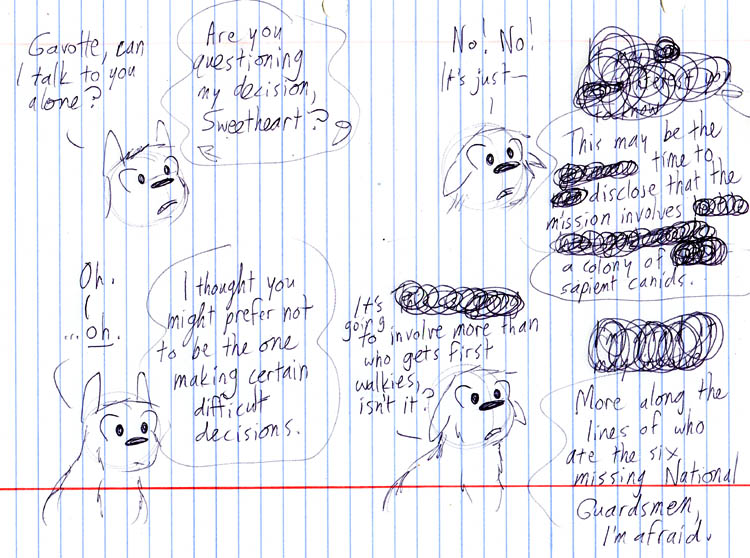 Gavotte, can
I talk to you
alone?
Are you
questioning
my decision,
Sweetheart?
No! No!
It's just—
This may be the
time to
disclose that the
mission involves
a colony of
sapient canids.
Oh.
...oh.
I thought you
might prefer not
to be the one
making certain
difficult
decisions.
It's
going
to involve more than
who gets first
walkies,
isn't it?
More along the
lines of who
ate the six
missing National
Guardsmen,
I'm afraid.